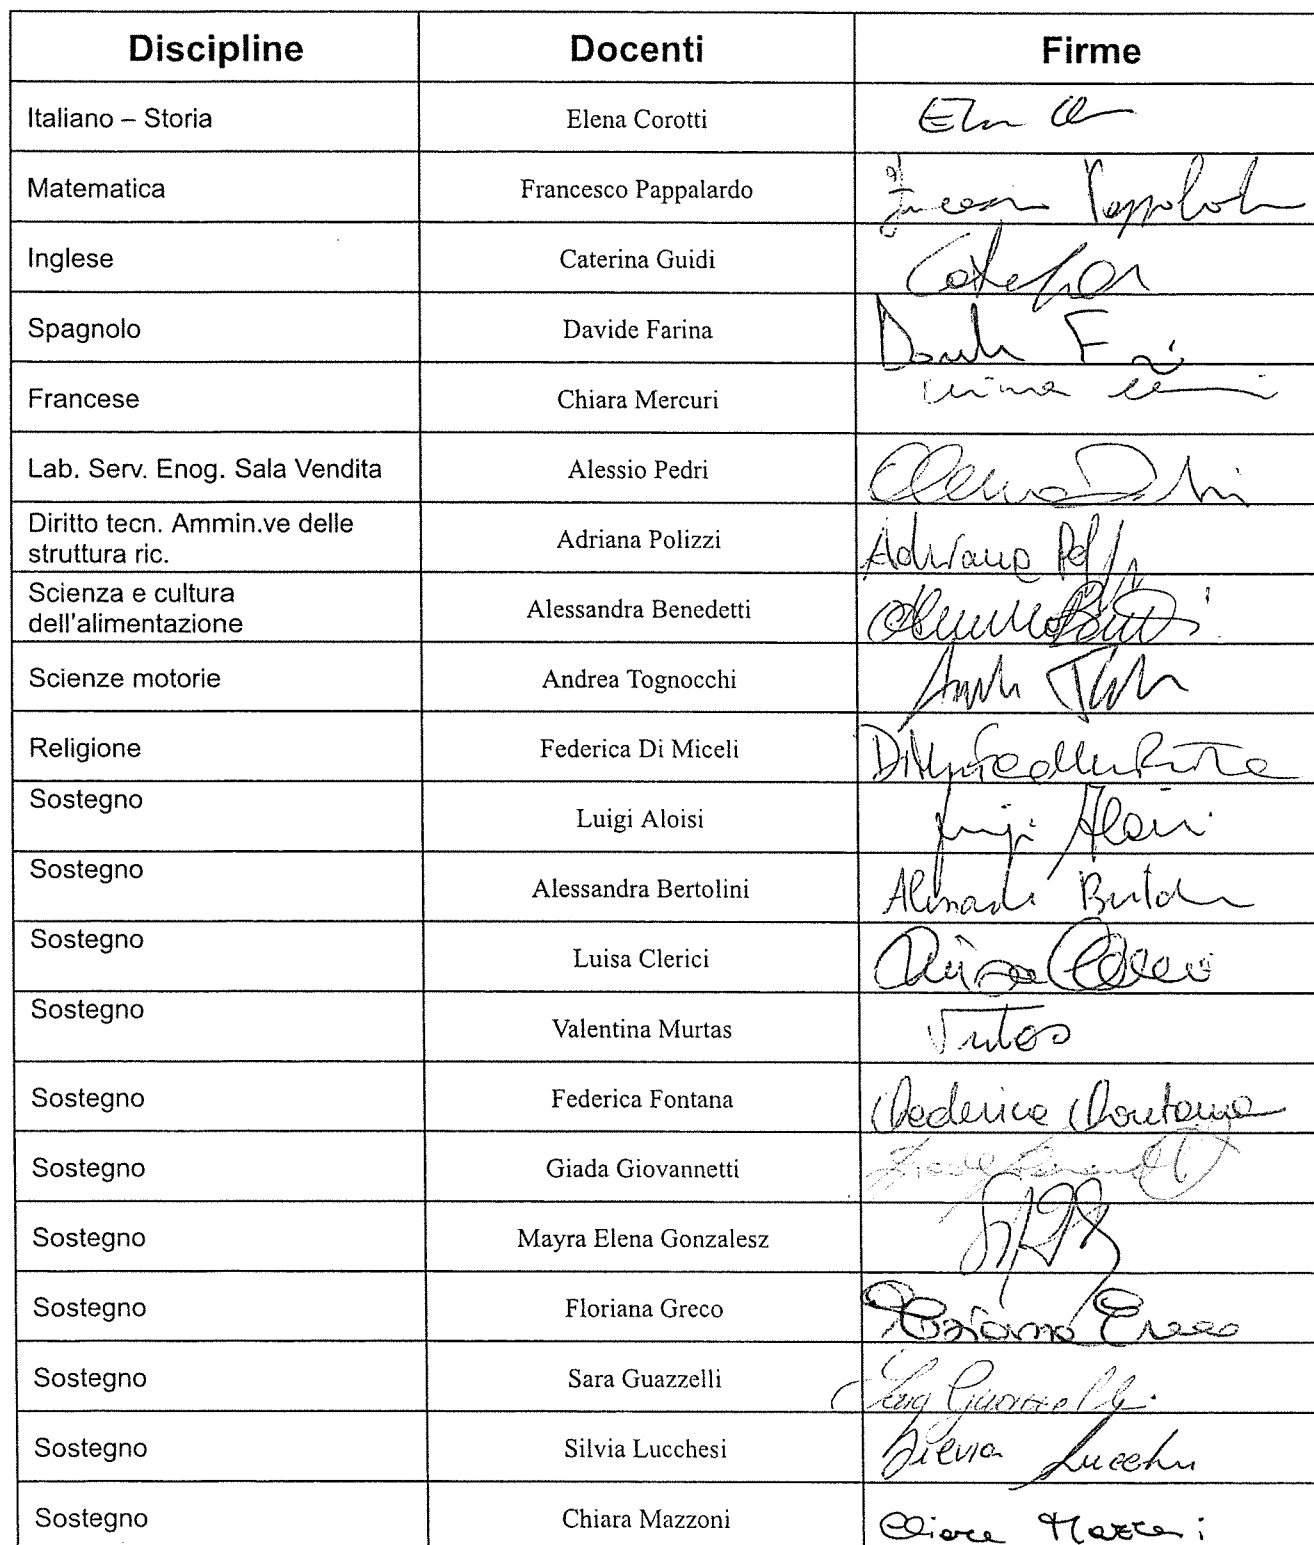 Discipline Docenti Firme
Italiano – Storia Elena Corotti
Matematica Francesco Pappalardo
Inglese Caterina Guidi
Spagnolo Davide Farina
Francese Chiara Mercuri
Lab. Serv. Enog. Sala Vendita Alessio Pedri
Diritto tecn. Ammin.ve delle
struttura ric. Adriana Polizzi Adriana
Scienza e cultura
dell'alimentazione Alessandra Benedetti
Scienze motorie Andrea Tognocchi
Religione Federica Di Miceli
Sostegno Luigi Aloisi Luigi Aloisi
Sostegno Alessandra Bertolini
Sostegno Luisa Clerici Luisa
Sostegno Valentina Murtas
Sostegno Federica Fontana Federica Fontana
Sostegno Giada Giovannetti
Sostegno Mayra Elena Gonzalesz
Sostegno Floriana Greco Floriana Greco
Sostegno Sara Guazzelli Sara Guazzelli
Sostegno Silvia Lucchesi Silvia
Sostegno Chiara Mazzoni Chiara Mazzoni